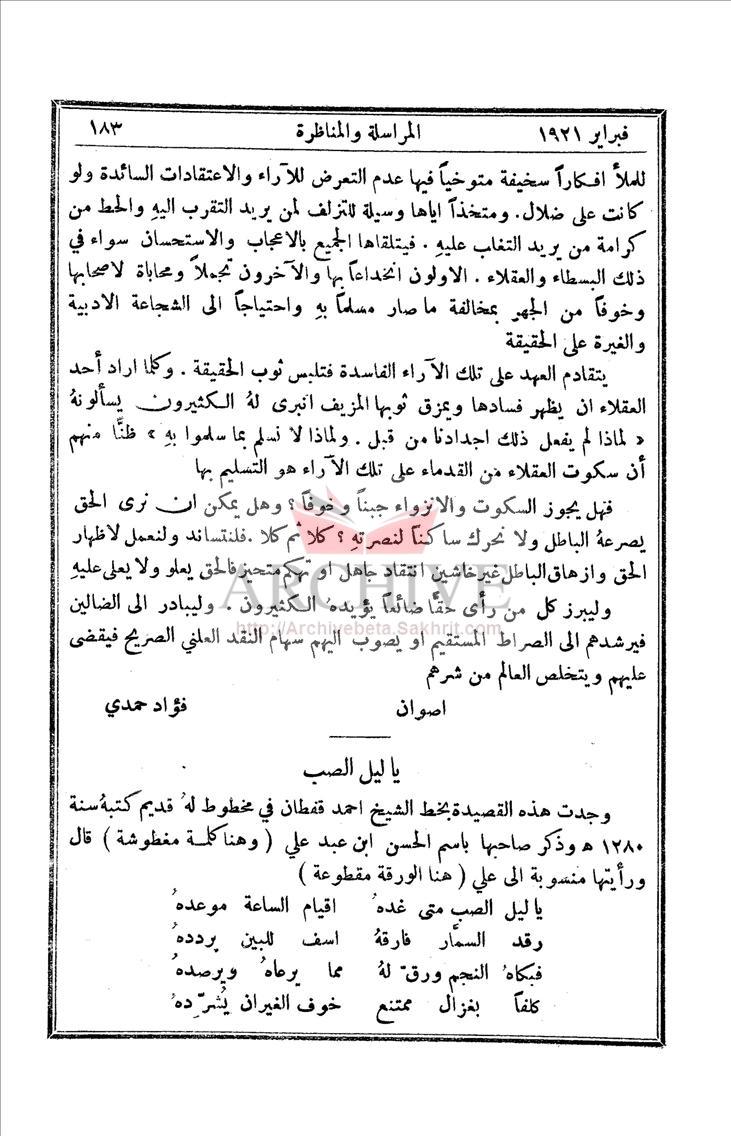 فبراير ١٩٢١ المراسلة والمناظرة ١٨٣
للملأ افكاراً سخيفة متوخياً فيها عدم التعرض للآراء والاعتقادات السائدة ولو
كانت على ضلال. ومتخذاً اياها وسيلة للتزلف لمن يريد التقرب اليهِ والحط من
كرامة من يريد التغاب عليهِ . فيتلقاها الجميع بالاعجاب والاستحسان سواء في
ذلك البسطاء والعقلاء . الاولون انخداعاً بها والآخرون تجملاً ومحاباة لاصحابها
وخوفاً من الجهر بمخالفة ما صار مسلماً بهِ واحتياجاً الى الشجاعة الادبية
والغيرة على الحقيقة
يتقادم العهد على تلك الآراء الفاسدة فتلبس ثوب الحقيقة . وكلما اراد أحد
العقلاء ان يظهر فسادها ويمزق ثوبها المزيف انبرى لهُ الكثيرون يسألونهُ
« لماذا لم يفعل ذلك اجدادنا من قبل . ولماذا لا نسلم بما سلموا بهِ » ظنًّا منهم
أن سكوت العقلاء من القدماء على تلك الآراء هو التسليم بها
فهل يجوز السكوت والانزواء جبناً وخوفاً ؟ وهل يمكن ان نرى الحق
يصرعهُ الباطل ولا نحرك ساكناً لنصرتهِ ؟ كلا ثم كلا . فلنتساند ولنعمل لاظهار
الحق وازهاق الباطل غير خاشين انتقاد جاهل او تهكم متحيز فالحق يعلو ولا يعلى عليهِ
وليبرز كل من رأى حقًّا ضائعاً يؤيدهُ الكثيرون . وليبادر الى الضالين
فيرشدهم الى الصراط المستقيم او يصوب اليهم سهام النقد العلني الصريح فيقضى
عليهم ويتخلص العالم من شرهم
اصوان فؤاد حمدي
ARCHIVE
http://Archivebeta.Sakhrit.com
يا ليل الصب
وجدت هذه القصيدة بخط الشيخ احمد قفطان في مخطوط لهُ قديم كتبهُ سنة
١٢٨٠ ه وذكر صاحبها باسم الحسن ابن عبد علي ( وهنا كلمة مغطوشة ) قال
ورأيتها منسوبة الى علي ( هنا الورقة مقطوعة )
يا ليل الصب متى غدهُ اقيام الساعة موعدهُ
رقد السمَّار فارقهُ اسف للبين يرددهُ
فبكاهُ النجم ورقّ لهُ مما يرعاهُ ويرصدهُ
كلفاً بغزال ممتنع خوف الغيران يُشرّدهُ